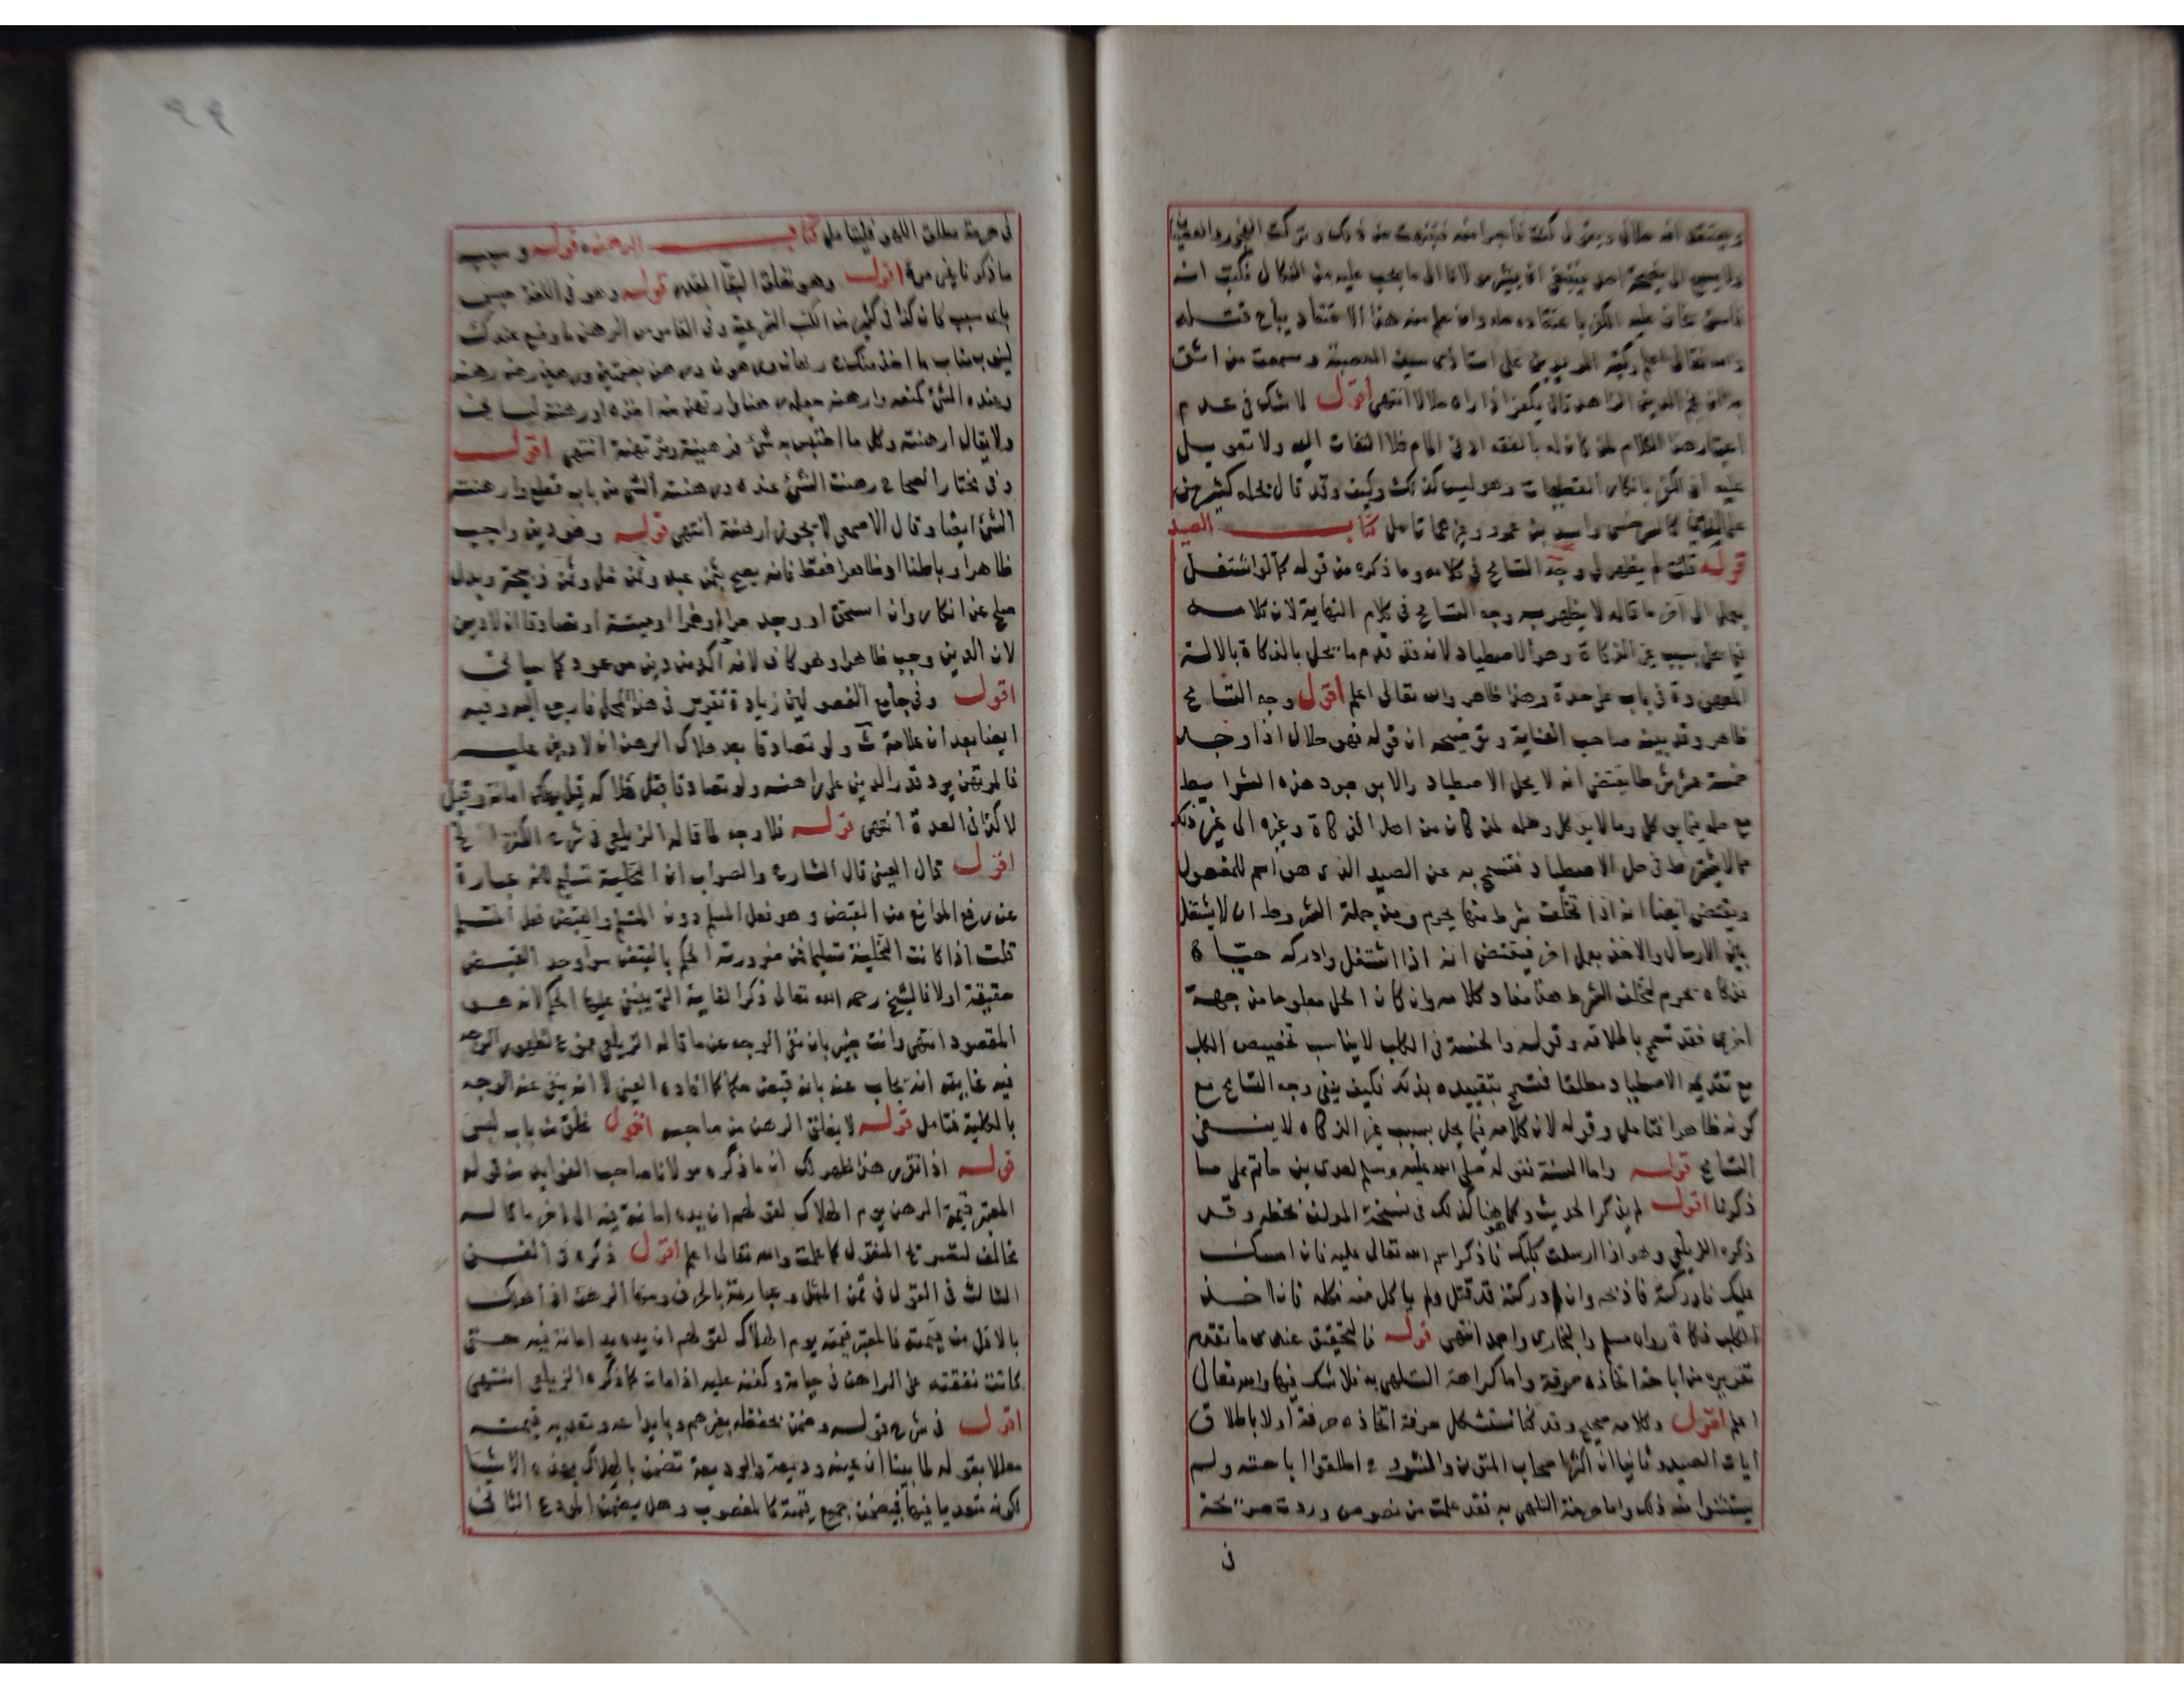 ويعتقد انه حلال ويقول كنت فاجرا منه فتنزهت من ذلك وتركت الفجور
ولا يسمع الى نصيحة احد ينبغي ان يشير مولانا الى ما يجب عليه من النكال فكتب انه
فاسق يخاف عليه الكفر باعتقاده حله وان علم منه هذا الاعتقاد يباح قتله
والله تعالى اعلم من استاذى سمعت من اثق
به ان نجم الدين الزاهد قال يكفر اذا راه حلالا انتهى اقول لا شك في عدم
اعتبار هذا الكلام لمن كان له بالفقه ادنى المام فلا التفات اليه ولا تعويل
عليه اذ الكفر بانكار القطعيات وهو ليس كذلك وكيف وقد قال بحله كثير من
علمائنا كالسرخسى واسد بن عمرو وغيرهما تامل كتاب الصيد
قوله قلت لم يظهر لى وجه التسامح في كلامه وما ذكره من قوله كما لو اشتغل
بعمل الى آخر ما قاله لا يظهر به وجه التسامح في كلام النهاية لان كلامه
فيما يحل بسبب غير الذكاة وهو الاصطياد لانه قد قدم ما يحل بالذكاة بالالة
المعهودة في باب على حدة وهذا ظاهر والله تعالى اعلم اقول وجه التسامح
ظاهر وقد بينه صاحب العناية وتوضيحه ان قوله فهو حلال اذا وجد
خمسة عشر شرطا يقتضى انه لا يحل الاصطياد والا بوجود هذه الشرايط
مع حله فيما يوكل وما لا يوكل وحله لمن كان من اهل الذكاة وغيره الى غير ذلك
مما لا يشترط في حل الاصطياد فتسمح به عن الصيد الذى هو اسم للمفعول
ويقتضى ايضا انه اذا تخلف شرط منها يحرم ومن جملة الشروط ان لا يشتغل
بين الارسال والاخذ بعمل اخر فيقتضى انه اذا اشتغل وادركه حيا
فذكاه يحرم لتخلف الشرط هذا مفاد كلامه وان كان الحل معلوما من جهة
اخرى فقد تسمح باطلاقه وقوله والخمسة في الكلب لا يناسب تخصيص الكلب
مع تقديمه الاصطياد مطلقا فتسمح بتقييده بذلك فكيف ينفى وجه التسامح مع
كونه ظاهرا فتامل وقوله لان كلامه فيما يحل بسبب غير الذكاه لا ينفى
التسامح قوله واما السنة فقوله صلى الله عليه وسلم لعدى بن حاتم على ما
ذكرنا اقول لم يذكر الحديث وكما هنا هو كذلك في نسخة المولف بخطه وقد
ذكره الزيلعى وهو اذا ارسلت كلبك فاذكر اسم الله تعالى عليه فان امسك
عليك فادركته فاذبحه وان ادركته قد قتل ولم ياكل منه فكله فان اخذ
الكلب ذكاة رواه مسلم والبخارى واحمد انتهى قوله فالتحقيق عندى ما تقدم
تقريره من اباحة اتخاذه حرفة واما كراهة التلهى به فلا شك فيها والله تعالى
اعلم اقول وكلامه صحيح وقد كنا نستشكل حرفة اتخاذه حرفة اولا باطلاق
ايات الصيد وثانيا ان اكثر اصحاب المتون والشروح اطلقوا اباحته ولم
يستثنوا منه ذلك واما حرمة التلهى به فقد علمت من نصوص وردت صريحة
في
في حرمة مطلق اللهو فليتامل كتاب الرهن قوله وسبب
ما ذكرنا غير مرة اقول وهو تعلق البقا المقدر قوله وهو في اللغة حبس
باى سبب كان كذا في كثير من الكتب الشرعية وفي القاموس الرهن ما وضع عندك
لينوب مناب ما اخذ منك ج رهان ورهون ورهن بضمتين ورهين رهنه
وعنده الشئ كمنعه وارهنه جعله رهنا وارتهن منه اخذه ورهنته لسانى
ولا يقال ارهنته وكل ما احتبس به شئ فرهينه ومرتهنه انتهى اقول
وفي مختار الصحاح رهنت الشئ عنده ورهنته الشئ من باب قطع وارهنته
الشئ ايضا وقال الاصمعى لا يجوز ارهنته انتهى قوله وهو دين واجب
ظاهرا وباطنا او ظاهرا فقط فانه يصح بثمن عبد وثمن خل وثمن ذبيحة وبدل
صلح عن انكار وان استحق او وجد حرا او خمرا او ميتة او تصادقا ان لا دين
لان الدين وجب ظاهرا وهو كاف لانه آكد من دين موعود كما سياتى
اقول وفي جامع الفصولين زيادة تقرير في هذا المحل فارجع اليه وفيه
ايضا بعد ان علامة ث ولو تصادقا بعد هلاك الرهن ان لا دين عليه
فالمرتهن يرد قدر الدين على راهنه ولو تصادقا قبل هلاكه قيل يهلك امانة وقيل
لا كذا في العدة انتهى قوله فلا وجه لما قاله الزيلعى في شرح الكنز الخ
اقول قال العينى قال الشارح والصواب ان التخلية تسليم لانه عبارة
عن رفع الموانع من القبض وهو فعل المسلم دون المتسلم والقبض فعل المتسلم
قلت اذا كانت التخلية تسليما فمن ضرورته الحكم بالقبض سوا وجد القبض
حقيقة اولا فالشيخ رحمه الله تعالى ذكر الغاية التى يبنى عليها الحكم لانه هو
المقصود انتهى وانت خبير بان نفى الوجه عن ما قاله الزيلعى ممنوع لظهور الوجه
فيه غايته انه يجاب عنه بانه قبض حكما كما افاده العينى لا انه ينفى عنه الوجه
بالكلية فتامل قوله لا يغلق الرهن من صاحبه اقول غلق من باب لبس
قوله اذا تقرر هذا ظهر لك ان ما ذكره مولانا صاحب الفوايد من قوله
المعتبر قيمة الرهن يوم الهلاك لقولهم ان يده امانة فيه الى اخر ما قاله
مخالف لتصريح المنقول كما علمت والله تعالى اعلم اقول ذكره في الفن
الثالث في القول في ثمن المثل وعبارته بالحرف ومنها الرهن اذا هلك
بالاقل من قيمته فالمعتبر قيمته يوم الهلاك لقولهم ان يده يد امانة فيه حتى
كانت نفقته على الراهن في حياته وكفنه عليه اذا مات كما ذكره الزيلعى انتهى
اقول في شرح قوله وضمن بحفظه بغيرهم وبايداعه وتعديه قيمته
معللا بقوله لما بينا ان عينه وديعة والوديعة تضمن بالهلاك بهذه الاشيا
لكونه متعديا فيها فيضمن جميع قيمته كالمغصوب وهل يضمن المودع الثانى